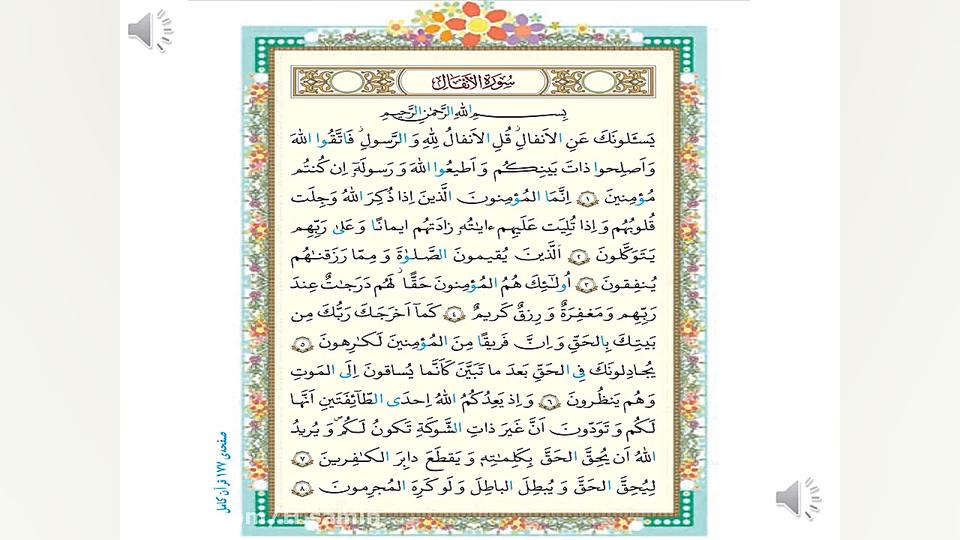 سُورَةُ الأَنفالِ
بِسمِ اللهِ الرَّحمٰنِ الرَّحيمِ
يَسـَٔلونَكَ عَنِ الاَنفالِ ۖ قُلِ الاَنفالُ لِلّٰهِ وَ الرَّسولِ ۖ فَاتَّقُوا اللهَ
وَ اَصلِحوا ذاتَ بَينِكُم وَ اَطيعُوا اللهَ وَ رَسولَهٗٓ اِن كُنتُم
مُؤمِنينَ ﴿١﴾ اِنَّمَا المُؤمِنونَ الَّذينَ اِذا ذُكِرَ اللهُ وَجِلَت
قُلوبُهُم وَ اِذا تُلِيَت عَلَيهِم ءايٰتُهٗ زادَتهُم ايمانًا وَ عَلىٰ رَبِّهِم
يَتَوَكَّلونَ ﴿٢﴾ اَلَّذينَ يُقيمونَ الصَّلوٰةَ وَ مِمّا رَزَقنٰهُم
يُنفِقونَ ﴿٣﴾ اُولٰٓئِكَ هُمُ المُؤمِنونَ حَقًّا ۚ لَهُم دَرَجٰتٌ عِندَ
رَبِّهِم وَ مَغفِرَةٌ وَ رِزقٌ كَريمٌ ﴿٤﴾ كَمآ اَخرَجَكَ رَبُّكَ مِن
بَيتِكَ بِالحَقِّ وَ اِنَّ فَريقًا مِنَ المُؤمِنينَ لَكٰرِهونَ ﴿٥﴾
يُجٰدِلونَكَ فِى الحَقِّ بَعدَ ما تَبَيَّنَ كَاَنَّما يُساقونَ اِلَى المَوتِ
وَ هُم يَنظُرونَ ﴿٦﴾ وَ اِذ يَعِدُكُمُ اللهُ اِحدَى الطّآئِفَتَينِ اَنَّها
لَكُم وَ تَوَدّونَ اَنَّ غَيرَ ذاتِ الشَّوكَةِ تَكونُ لَكُم وَ يُريدُ
اللهُ اَن يُحِقَّ الحَقَّ بِكَلِمٰتِهٖ وَ يَقطَعَ دابِرَ الكٰفِرينَ ﴿٧﴾
لِيُحِقَّ الحَقَّ وَ يُبطِلَ الباطِلَ وَ لَو كَرِهَ المُجرِمونَ ﴿٨﴾
صفحه‌ی ۱۷۷ قرآن کامل